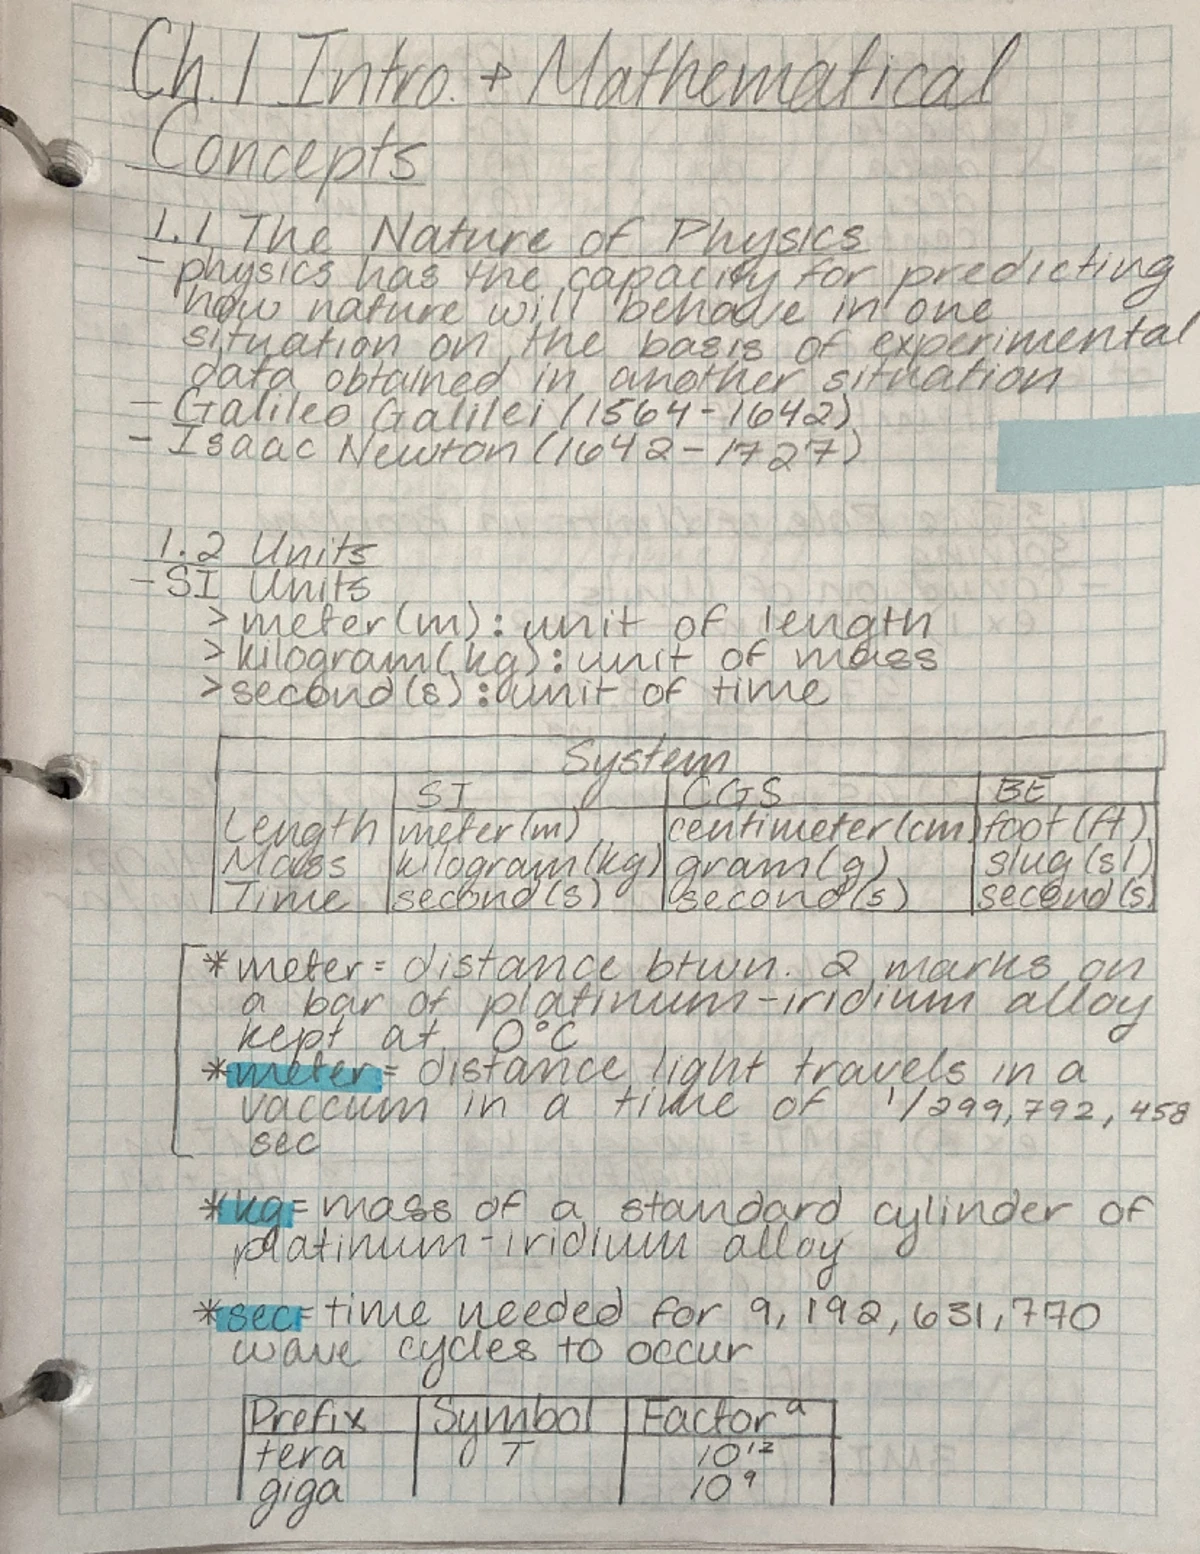 Ch. 1 Intro. + Mathematical
Concepts
1.1 The Nature of Physics
- physics has the capacity for predicting
how nature will behave in one
situation on the basis of experimental
data obtained in another situation
- Galileo Galilei (1564-1642)
- Isaac Newton (1642-1727)
1.2 Units
- SI Units
> meter (m): unit of length
> kilogram (kg): unit of mass
> second (s): unit of time
System
SI CGS BE
Length meter (m) centimeter (cm) foot (ft)
Mass kilogram (kg) gram (g) slug (sl)
Time second (s) second (s) second (s)
* meter = distance btwn. 2 marks on
a bar of platinum-iridium alloy
kept at 0°C
* meter = distance light travels in a
vaccum in a time of 1/299,792,458
sec
* kg = mass of a standard cylinder of
platinum-iridium alloy
* sec = time needed for 9,192,631,770
wave cycles to occur
Prefix Symbol Factor ª
tera T 10¹²
giga 10⁹